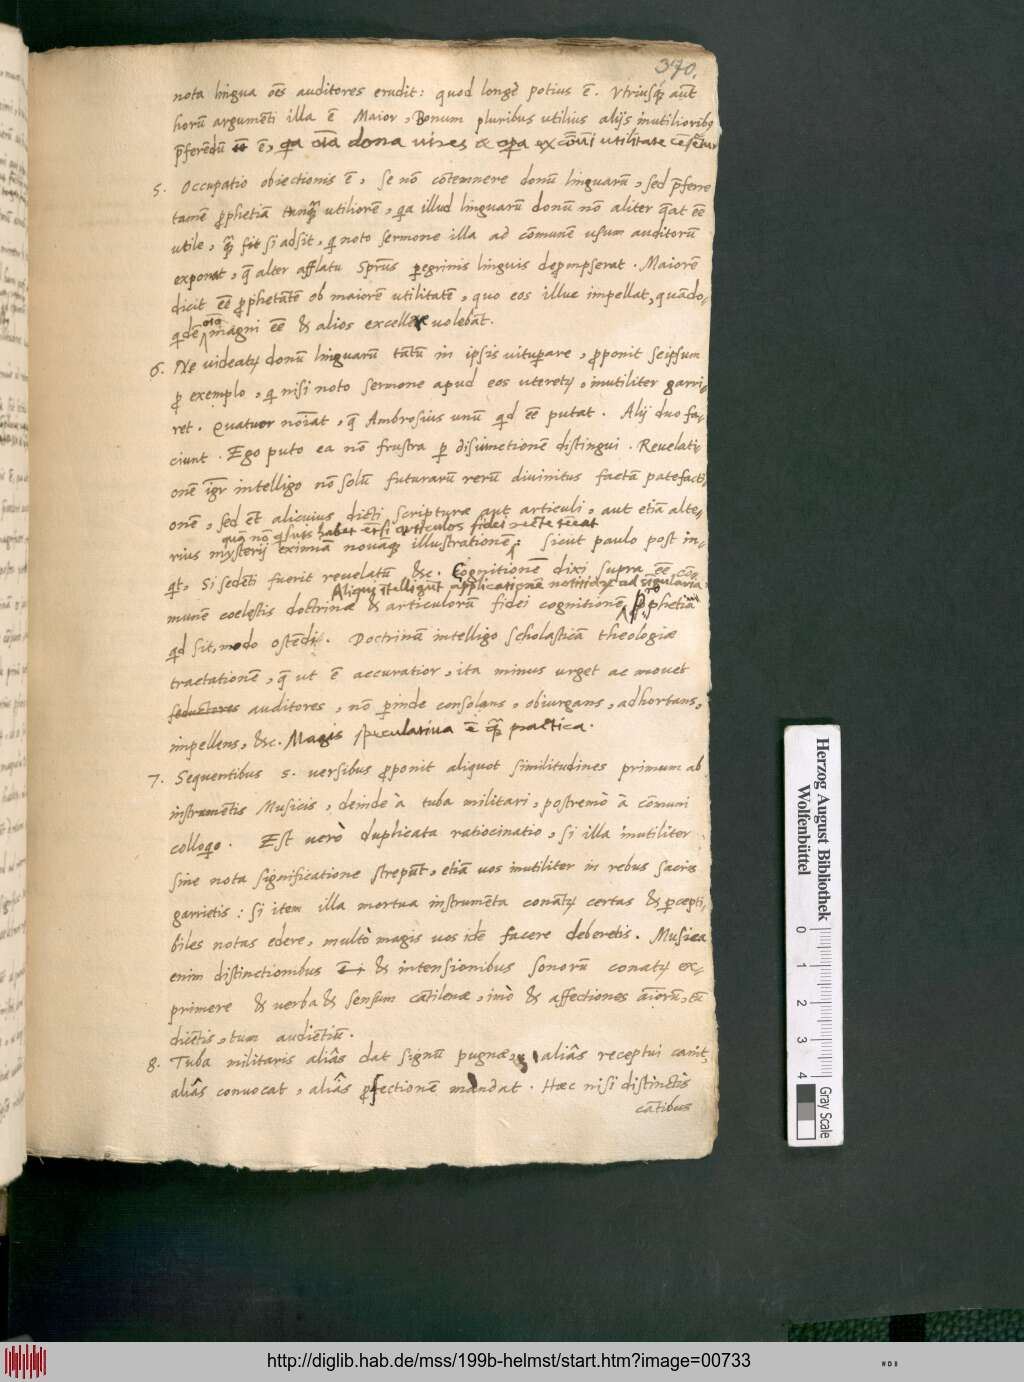 370.
nota lingua oēs auditores erudit: quod longè potius ē. Vtriusq; aut̄
horū argumēti illa ē Maior, Bonum pluribus utilius alijs inutilioribꝰ
p̄ferēdū ē, qa oīa dona vires & opa ex cōi utilitate cēsētur
5. Occupatio obiectionis ē, se nō cōtemnere donū linguarū, sed p̄ferre
tamē prophetiā tanq̄ utiliorē, qa illud linguarū donū nō aliter queat eē
utile, q̄ si adsit, qi noto sermone illa ad cōmunē usum auditorū
exponat, q̄ alter afflatu Sprūs peregrinis linguis depromserat. Maiorē
dicit eē prophetātē ob maiorē utilitatē, quo eos illuc impellat, quādo-
qdē oīo magni eē & alios excellere volebāt.
6. Ne videatur donū linguarū tātū in ipsis vituperare, proponit seipsum
pro exemplo, qi nisi noto sermone apud eos uteretur, inutiliter garri-
ret. Quatuor noīat, q̄ Ambrosius unū qid eē putat. Alij duo fa-
ciunt. Ego puto ea nō frustra per disiunctionē distingui. Reuelati-
onē igr intelligo nō solū futurarū rerū diuinitus factā patefacti-
onē, sed et alicuius dicti scripturæ aut articuli, aut etiā alte-
quā nō quiuis habet etsi articulos fidei recte teneat
rius mysterij eximiā nouāq; illustrationē: sicut paulo post in-
qt, Si sedēti fuerit reuelatū &c. Cognitionē dixi supra eē cō-
Aliqui ītelligūt applicationē notitiæ ad sigularia
munē coelestis doctrinæ & articulorū fidei cognitionē prophetia
qd sit, modo ostēdi. Doctrinam intelligo scholasticā theologiæ
tractationē, q̄ ut ē accuratior, ita minus urget ac mouet
seductores auditores, nō perinde consolans, obiurgans, adhortans,
impellens, &c. Magis speculatiua ē q̄ practica.
7. Sequentibus 5. versibus proponit aliquot similitudines primum ab
instrumētis Musicis, deinde à tuba militari, postremò à cōmuni
colloqio. Est verò duplicata ratiocinatio, si illa inutiliter
sine nota significatione strepūt, etiā vos inutiliter in rebus sacris
garrietis: si item illa mortua instrumēta conātur certas & percepti-
biles notas edere, multò magis vos idē facere deberetis. Musica
enim distinctionibus & intensionibus sonorū conatur ex-
primere & verba & sensum cātilenæ, imò & affectiones aīorū, tū
dicētis, tum audiētiū.
8. Tuba militaris aliâs dat signū pugnæ, aliâs receptui canit,
aliâs conuocat, aliâs profectionē mandat. Hæc nisi distinctis
cātibus
Herzog August Bibliothek
Wolfenbüttel
0 1 2 3 4
Gray Scale
http://diglib.hab.de/mss/199b-helmst/start.htm?image=00733
WDB